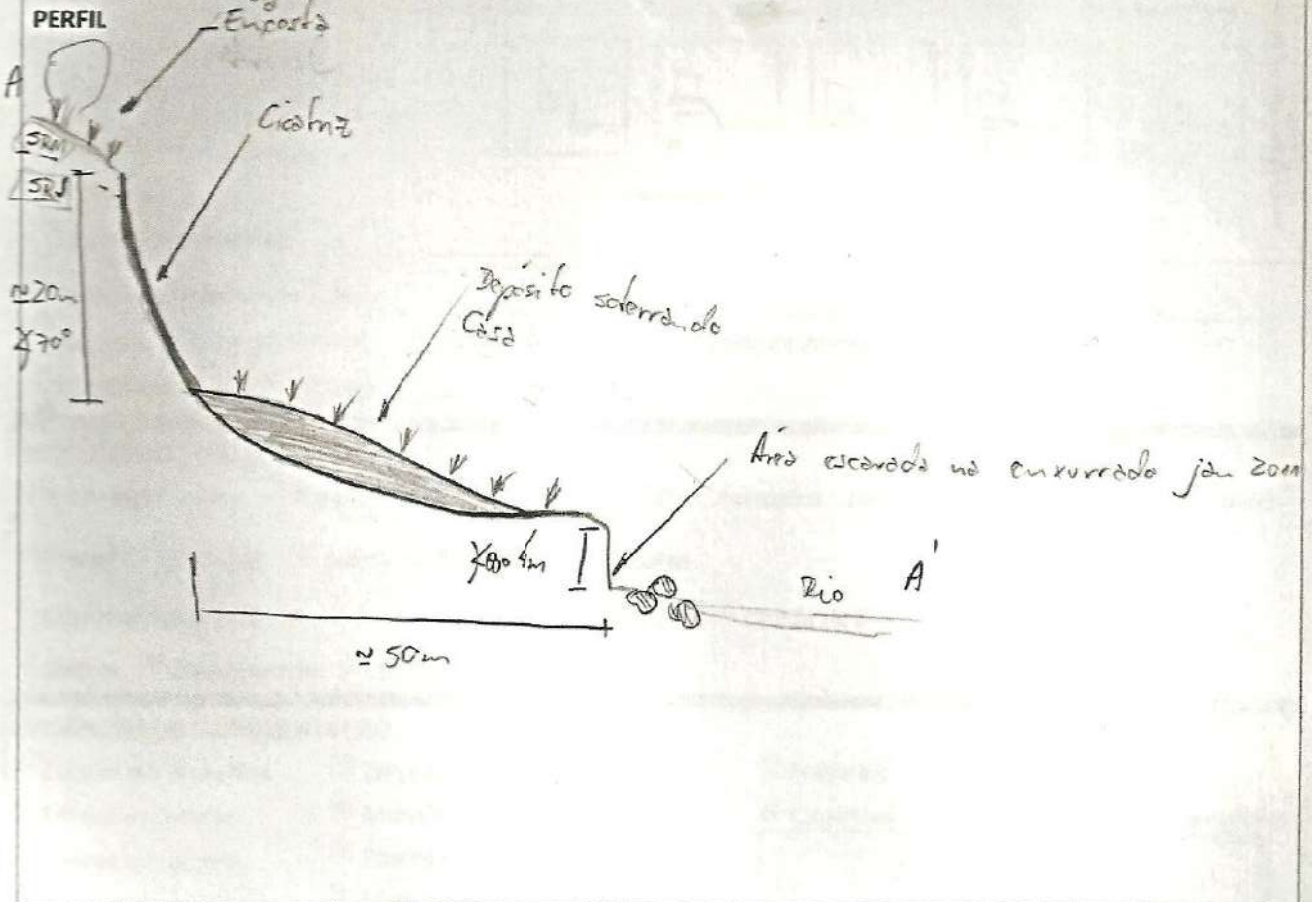 PERFIL
Encosta
A
Cicatriz
SRM
SRJ
≃20m
∡70°
Depósito soterrando
Casa
Área escavada na enxurrada jan 2011
∡80° 4m
Rio
A'
≃ 50m